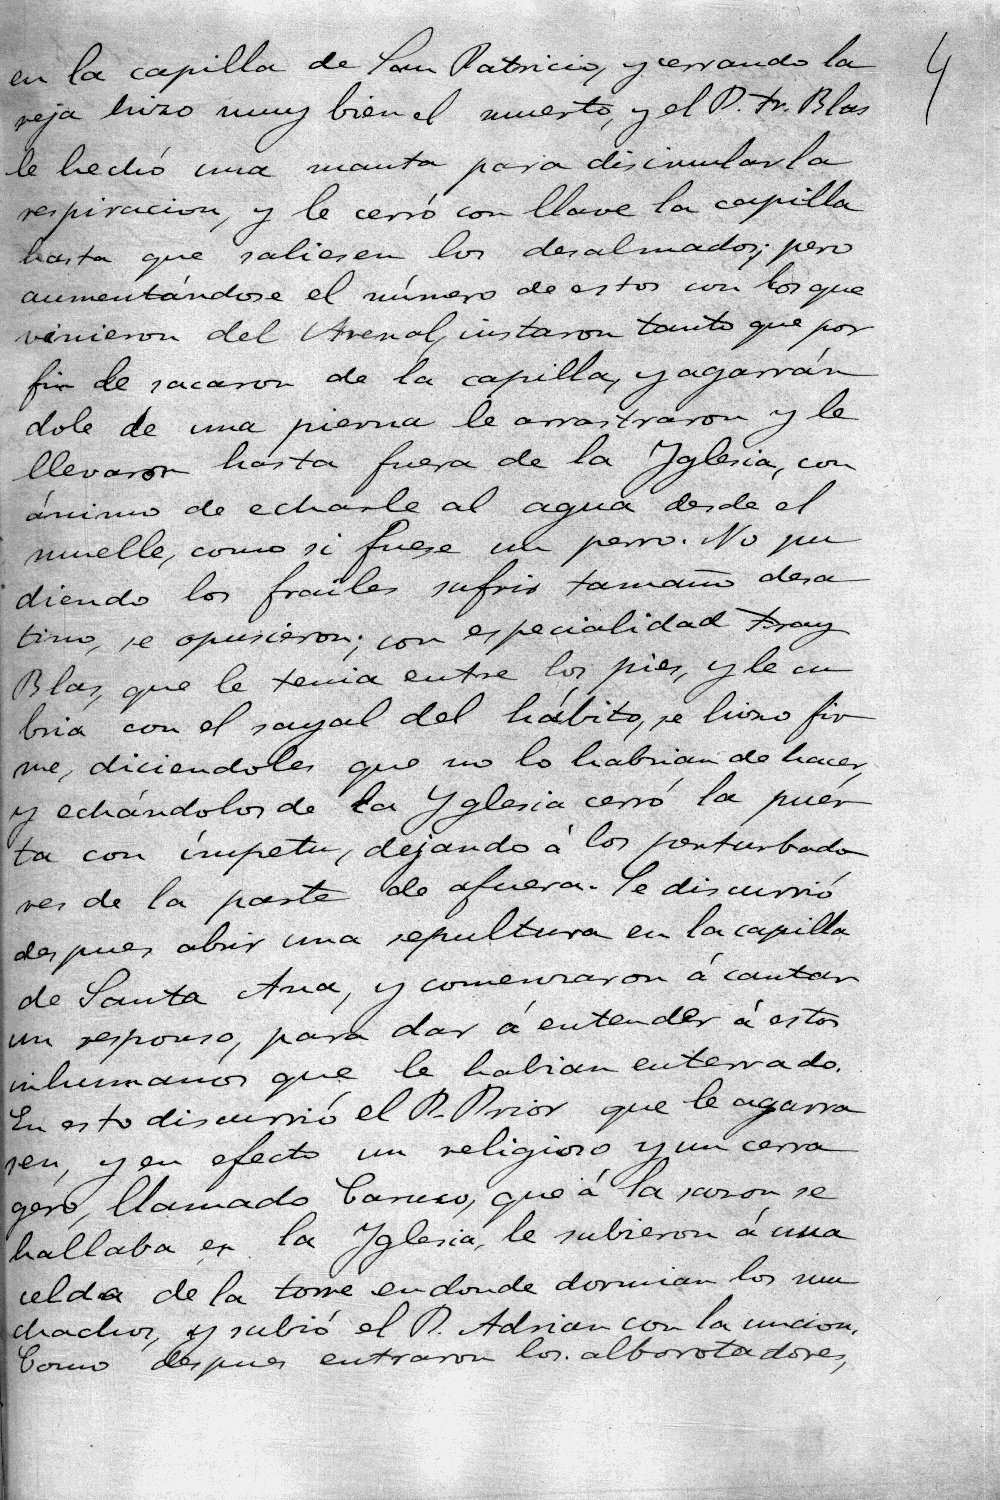 4
en la capilla de San Patricio, y cerrando la
reja hizo muy bien el muerto, y el P. Fr. Blas
le hechó una manta para disimular la
respiracion, y le cerró con llave la capilla
hasta que saliesen los desalmados; pero
aumentándose el número de estos con los que
vinieron del Arenal, instaron tanto que por
fin le sacaron de la capilla, y agarrán
dole de una pierna le arrastraron y le
llevaron hasta fuera de la Yglesia, con
ánimo de echarle al agua desde el
muelle, como si fuese un perro. No pu
diendo los frailes sufrir tamaño desa
tino, se opusieron; con especialidad Fray
Blas, que le tenia entre los pies, y le cu
bria con el sayal del hábito, se hizo fir
me, diciendoles que no lo habrian de hacer,
y echándolos de la Yglesia cerró la puer
ta con ímpetu, dejando á los perturbado
res de la parte de afuera. Se discurrió
despues abrir una sepultura en la capilla
de Santa Ana, y comenzaron á cantar
un responso, para dar á entender á estos
inhumanos que le habian enterrado.
En esto discurrió el P. Prior que le agarra
sen, y en efecto un religioso y un cerra
gero, llamado Caruso, que á la sazon se
hallaba en la Yglesia, le subieron á una
celda de la torre endonde dormian los mu
chachos, y subió el P. Adrian con la uncion.
Como despues entraron los alborotadores,